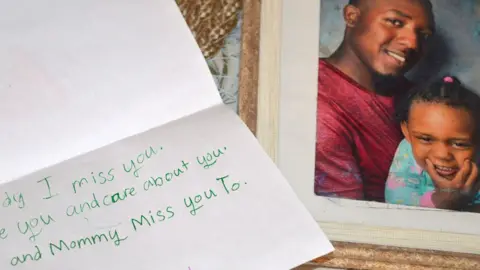 dy I miss you.
e you and care about you.
and Mommy Miss you To.